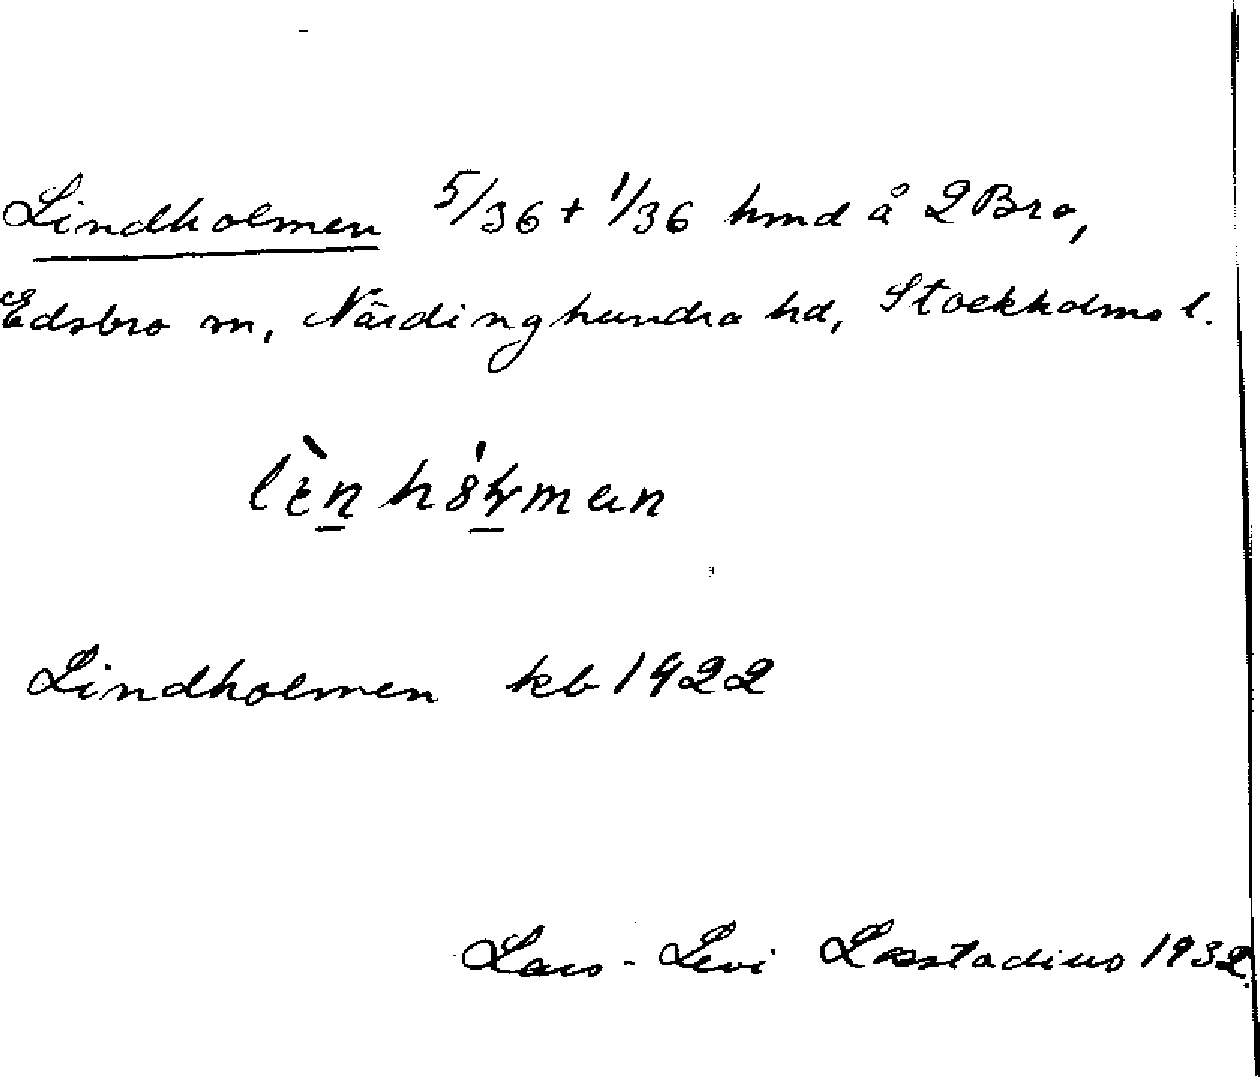 Lindholmen 5/36 + 1/36 hmd å 2 Bro,
Edsbro sn, Närdinghundra hd, Stockholms l.
Lindholmen kb 1922
Lars-Levi Læstadius 1932